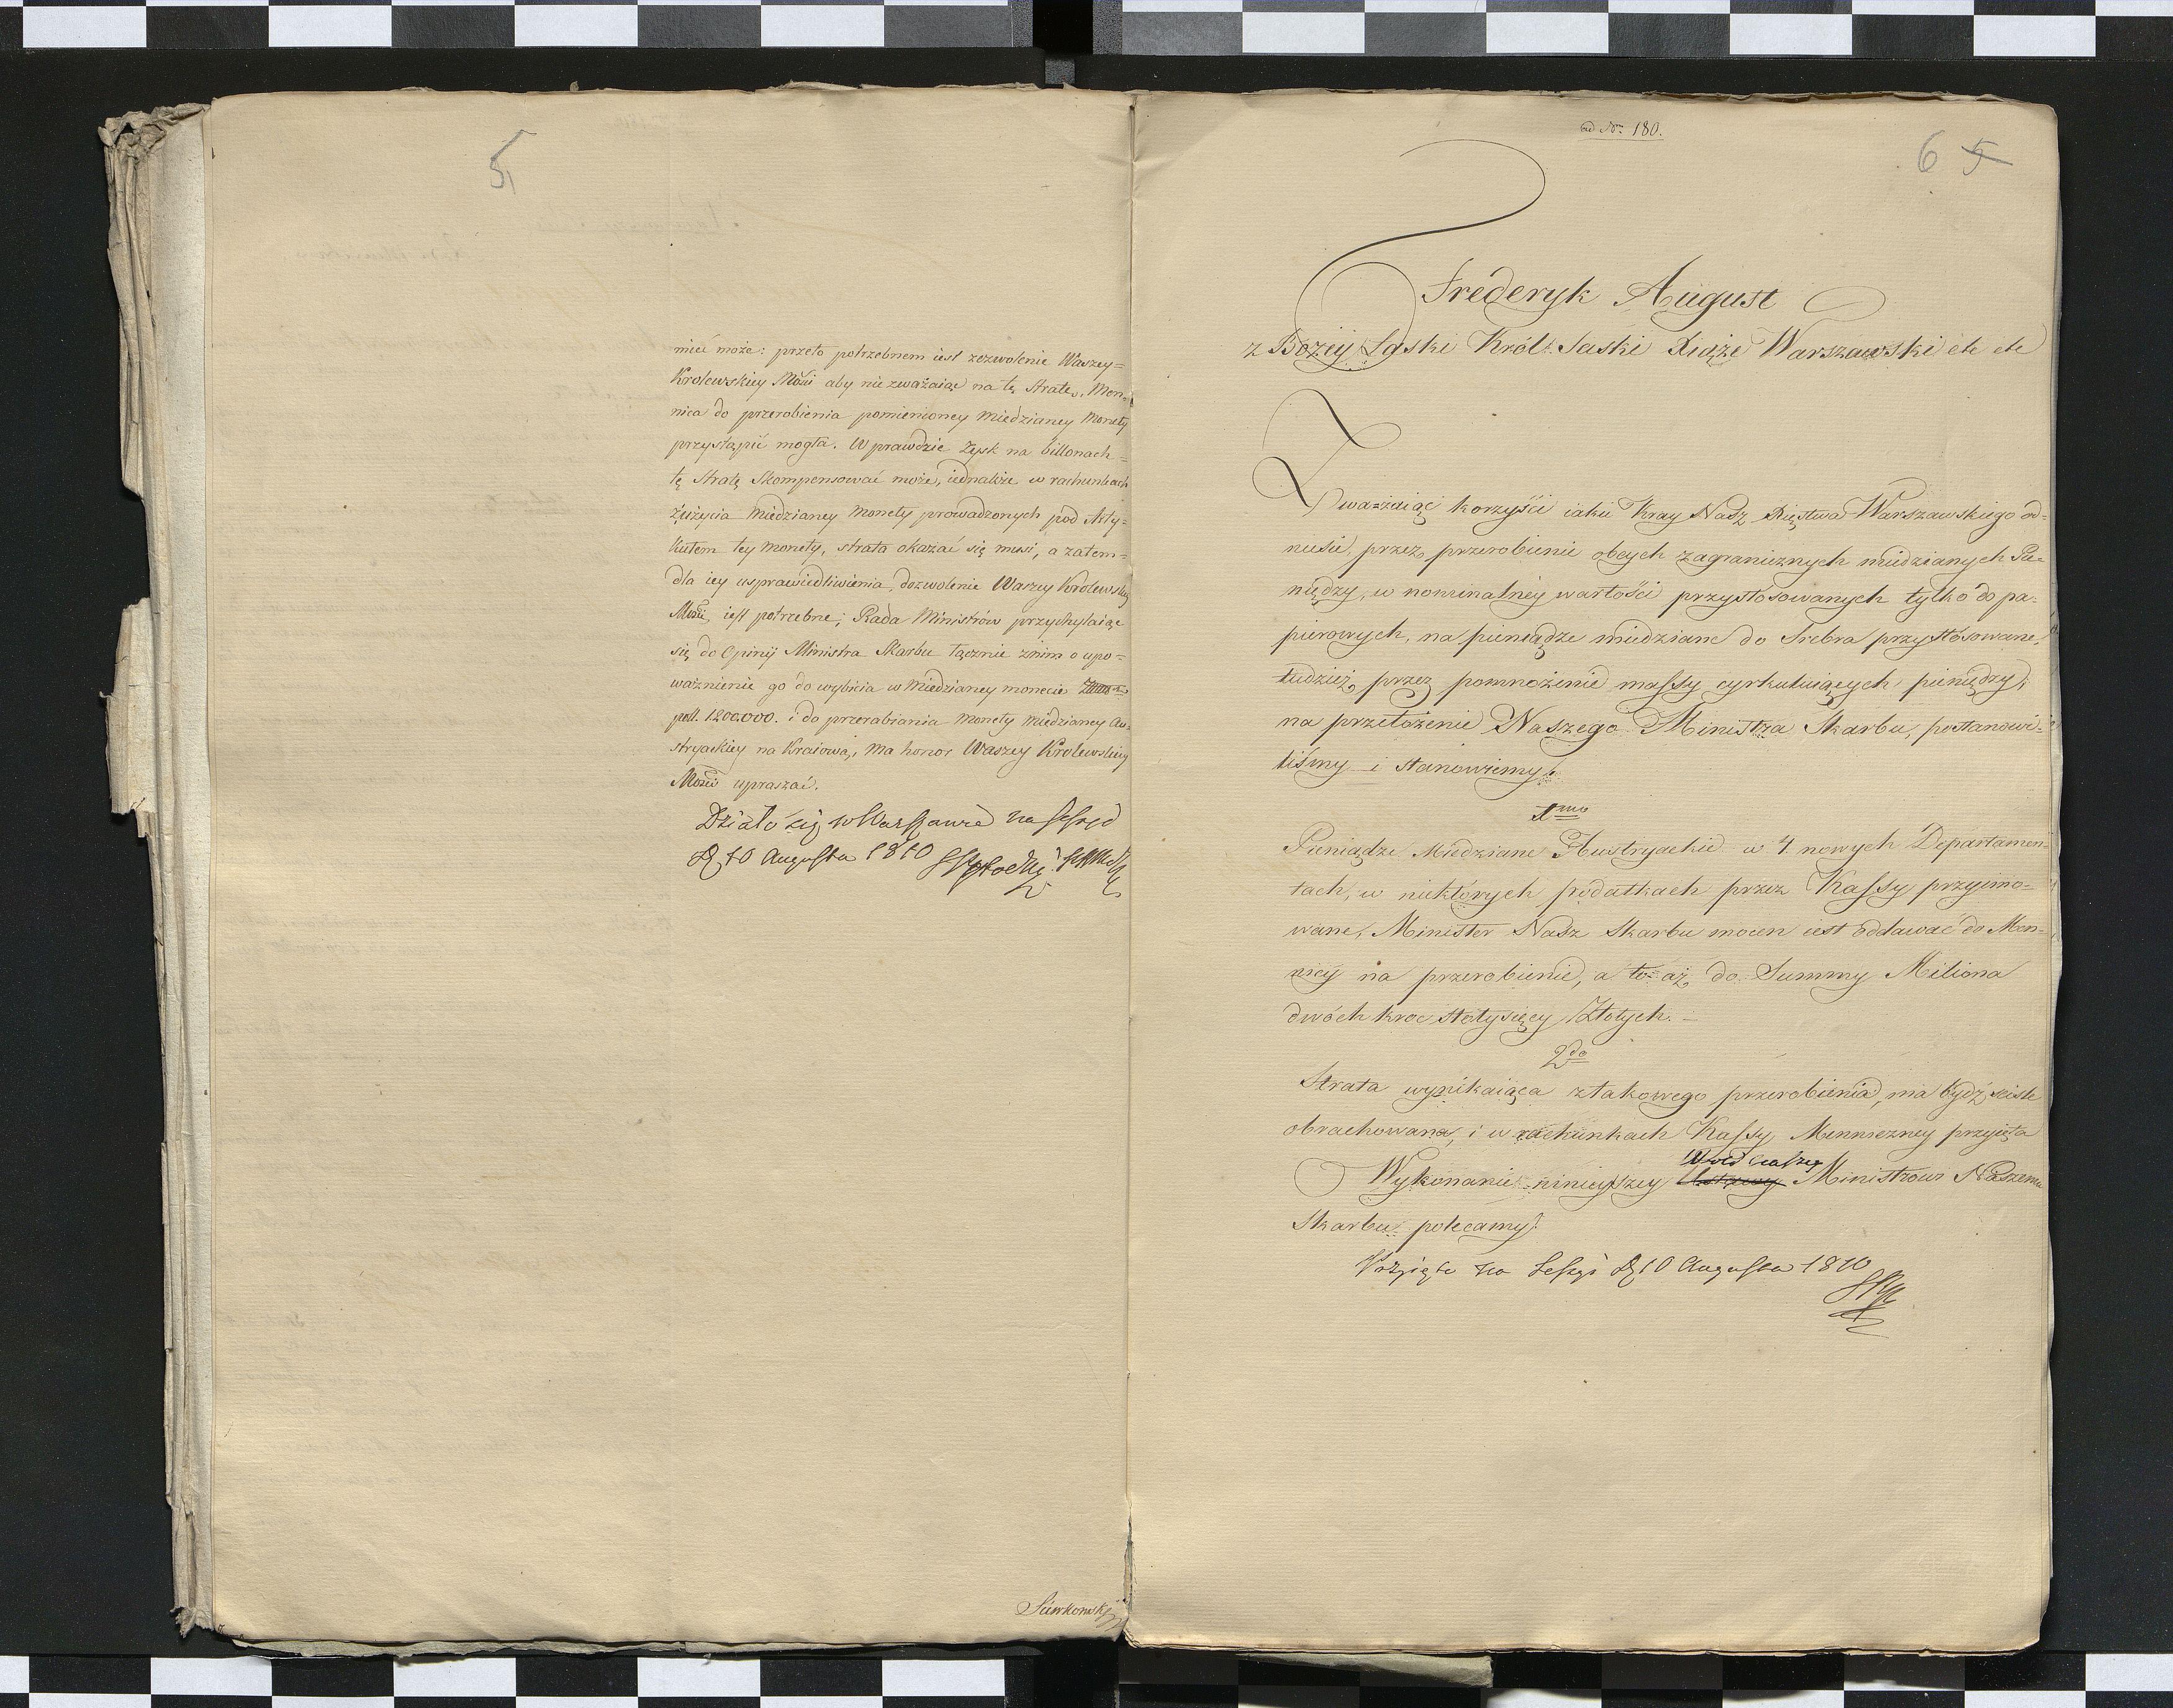 5
mieć może: przeto potrzebnem iest zezwolenie Waszey=
Krolewskiey Mości aby nie zważaiąc na tę stratę, Men=
nica do przerobienia pomienioney Miedzianey Monety
przystąpić mogła. Wprawdzie Zysk na billonach=
tę stratę skompensować może, iednakże w rachunkach
Zużycia Miedzianey Monety prowadzonych pod Arty=
kułem tey Monety, strata okazać się musi, a zatem=
dla iey usprawiedliwienia, dozwolenie Waszey Krolewskiey
Mości, iest potrzebne; Rada Ministrów przychylaiąc
się do Opinij Ministra Skarbu łącznie znim o upo=
ważnienie go do wybicia w Miedzianey monecie
poll. 1200.000. i do przerabiania Monety Miedzianey Au=
stryackiey na Kraiową, ma honor Waszey Krolewskiey
Mości upraszać.
Działo się w Warszawie na Sessyi
D. 10 Augusta 1810
Sierkowski
ad Nr. 180.
6 5
Frederyk August
z Bożey Łaski Król Saski Xiąże Warszawski etc etc
Zważaiąc korzyści iakie Kray Nasz Xięstwa Warszawskiego od=
niesie, przez przerobienie obcych zagranicznych miedzianych Pie=
niędzy, w nominalney wartości przystosowanych tylko do pa=
pierowych, na pieniądze miedziane do Srebra przystosowane,
tudzież przez pomnożenie massy cyrkuluiących pieniędzy;
na przełożenie Naszego Ministra Skarbu, postanowi=
liśmy i stanowiemy.
1mo
Pieniądze Miedziane Austryackie w 4 nowych Departamen=
tach, w niektórych podatkach przez Kassy przyimo=
wane, Minister Nasz Skarbu mocen iest oddawać do Men=
nicy na przerobienie, a to aż do Summy Miliona
dwóch kroć stotysięcy Złotych. -
2do
Strata wynikaiąca ztakowego przerobienia, ma bydź scisle
obrachowana, i w rachunkach Kassy Menniczney przyięta
Woli Naszey
Wykonanie ninieyszey Ustawy Ministrowi Naszemu
Skarbu polecamy.
Przyięte na Sessyi D. 10 Augusta 1810